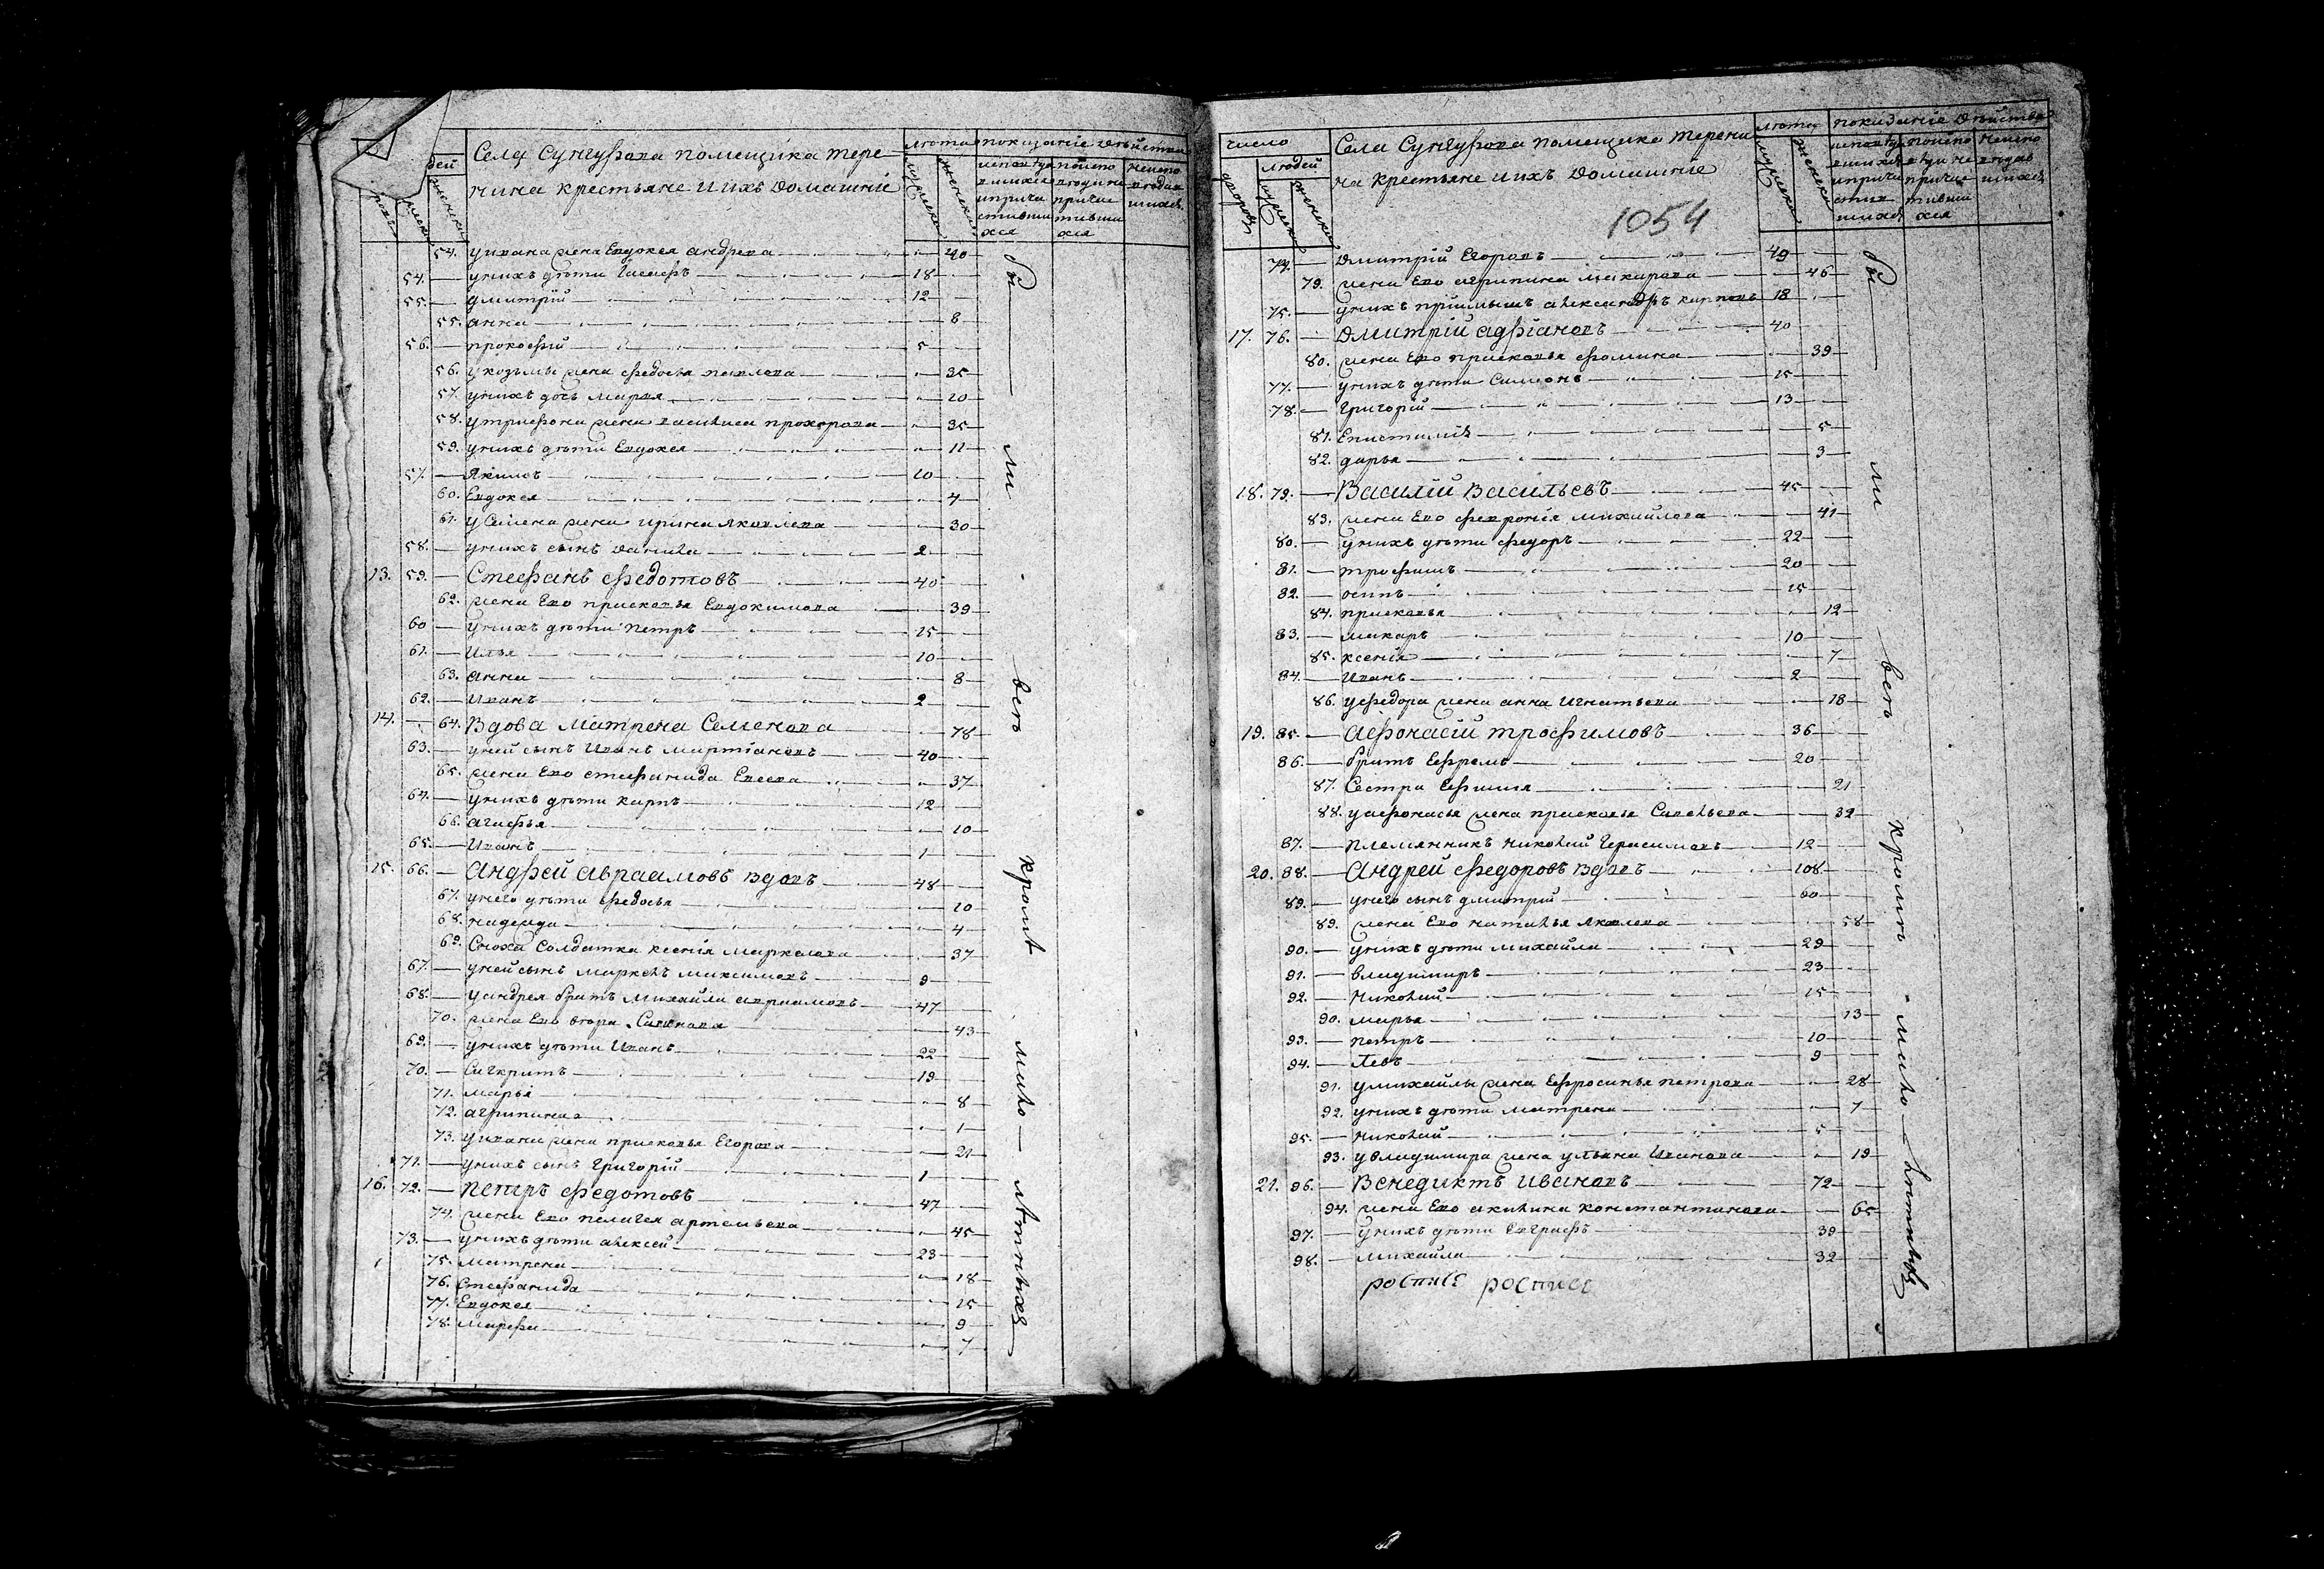 Села Сунгурова помещика тере
нина крестьяне иихъ домашніе
54. уивана жена Евдокея андреева 40
54. унихъ дѣти Іосифъ 18
55. дмитрій 12
55. анна 8
56. прокофій 5
56. укозьмы жена федосья павлова 35
57. унихъ дочь марья 10
58. утрифона жена василиса прохорова 35
59. унихъ дѣти Евдокея 11
57. Якимъ 10
60. Евдокея 4
61. уСемена жена ирина яковлева 30
58. унихъ сынъ данила 2
13. 59. Стефанъ федотовъ 40
62. жена Ево прасковья Евдокимова 39
60 унихъ дѣти петръ 15
61. Илья 10
63. анна 8
62. Иванъ 2
14. 64. Вдова матрена Семенова 78
63. уней сынъ Иванъ мартіановъ 40
65. жена Ево стефанида Евсева 37
64. унихъ дѣти карпъ 12
66. агафья 10
65. Иванъ 1
15. 66. Андрей авраамовъ вдовъ 48
67. унего дѣти федосья 10
68. надежда 4
69. Сноха Солдатка ксенія маркелова 37
67. уней сынъ маркелъ максимовъ 9
68. уандрея братъ михайла авраамовъ 47
70. жена Ево 43
69. унихъ дѣти Иванъ 22
70. 19
71. марья 8
72. агрипина 1
73. уивана жена прасковья Егорова 21
71. унихъ сынъ григорій 1
16. 72. петръ федотовъ 47
74. жена Ево пелагея артемьева 45
73. унихъ дѣти алексей 23
75. матрена 18
76. Стефанида 15
77. Евдокея 9
78. марфа 7
бы ли всѣ кромѣ мало лѣтныхъ
число людей дворовъ мужеска женска
Села Сунгурова помещика терени
на крестьяне иихъ домашніе
лѣта мужеска женска
показаніе дѣйства
1054
74. дмитрій Егоровъ 49
79. жена Ево агрипина макарова 46
75. унихъ пріимышъ александръ карповъ 18
17. 76. Дмитрій адріановъ 40
80. жена Ево прасковья фомина 39
77. унихъ дѣти Симіонъ 15
78. григорій 13
81. Епистимія 5
82. дарья 3
18. 79. Василій Васильевъ 45
83. жена Ево февронія михайлова 41
80. унихъ дѣти федоръ 22
81. трофимъ 20
82. осипъ 15
84. прасковья 12
83. макаръ 10
85. ксенія 7
84. Иванъ 2
86. уфедора жена анна игнатьева 18
19. 85. Афонасій трофимовъ 36
86. братъ Ефремъ 20
87. Сестра Ефимия 21
88. уафонасья жена прасковья Савельева 32
87. племянникъ николай герасимовъ 12
20. 88. Андрей федоровъ вдовъ 108
89. унего сынъ дмитрий 60
89. жена Ево наталья яковлева 58
90. унихъ дѣти михайла 29
91. владимиръ 23
92. николай 15
90. марья 13
93. петръ 10
94. Левъ 9
91. умихайлы жена Ефросинья петрова 28
92. унихъ дѣти матрена 7
95. николай 5
93. увладимира жена ульяна Иванова 19
21. 96. Венедиктъ ивановъ 72
94. жена Ево акилина константинова 65
97. унихъ дѣти Евграфъ 39
98. михайла 32
роспись роспись
бы ли всѣ кромѣ мало лѣтныхъ